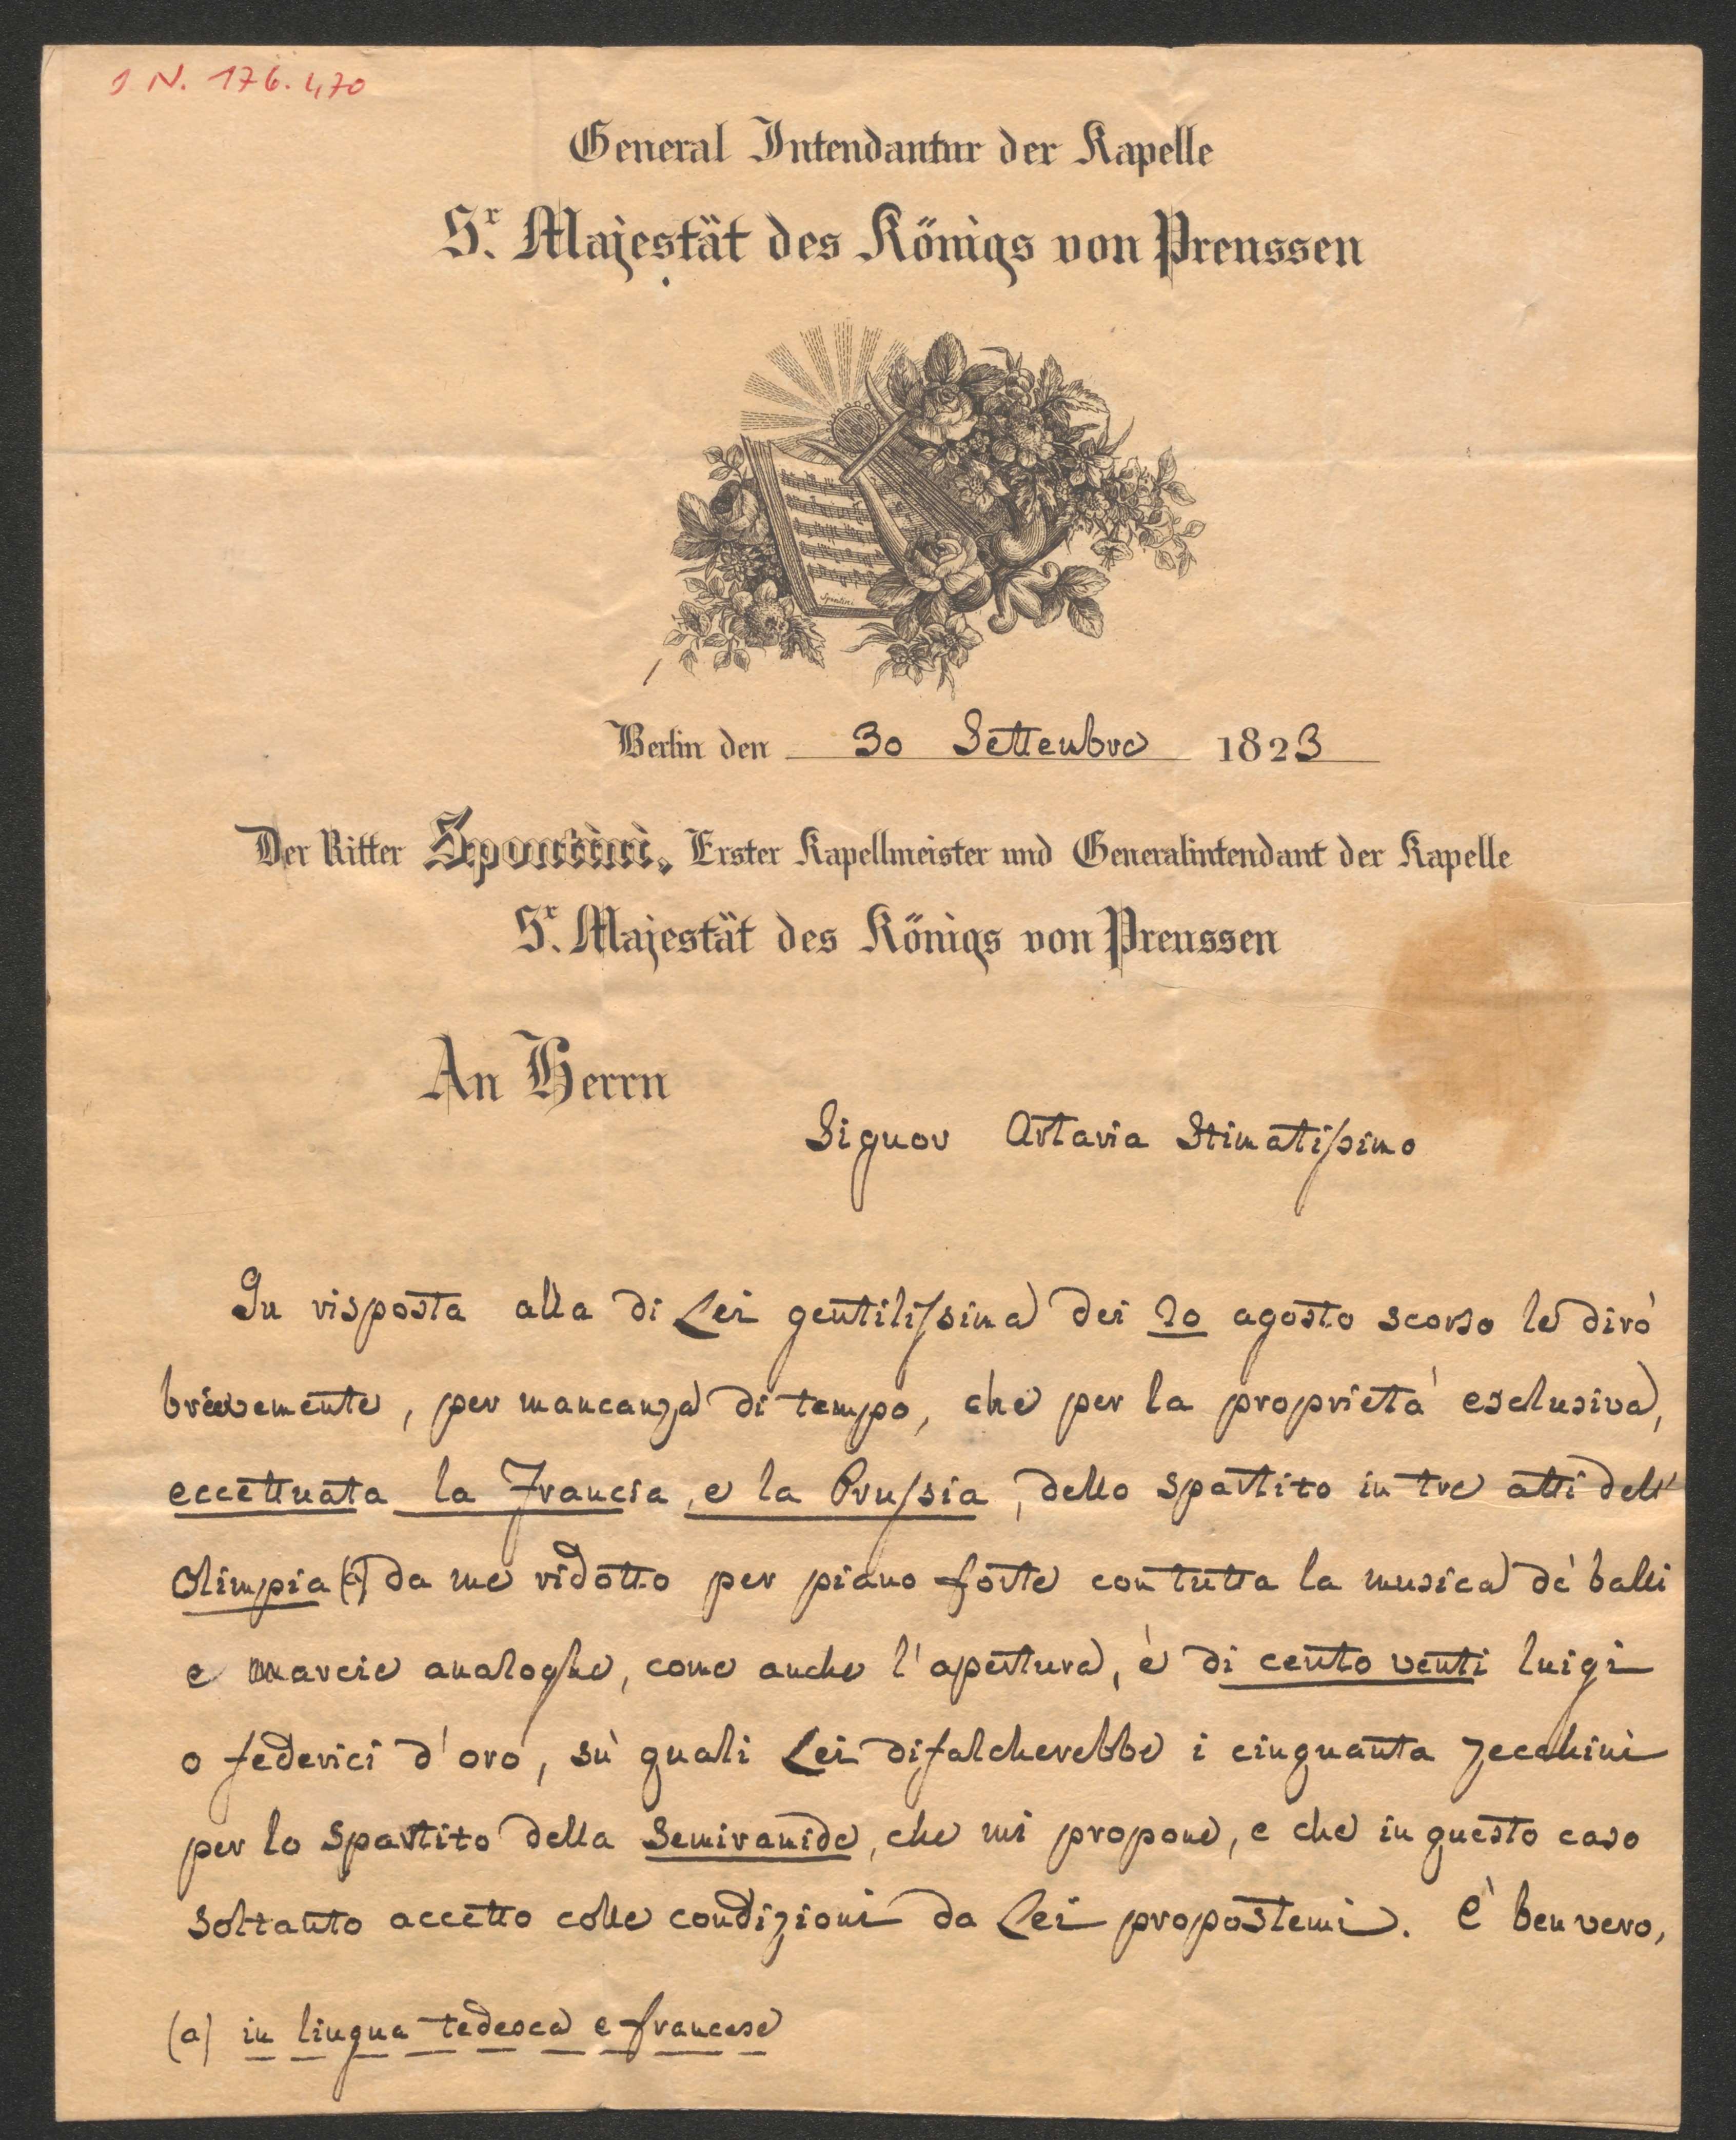 I N. 176.470
General Intendantur der Kapelle
Sr. Majestät des Königs von Preussen
Spontini
Berlin den 30 Settembre 1823
Der Ritter Spontini, Erster Kapellmeister und Generalintendant der Kapelle
Sr. Majestät des Königs von Preussen
An Herrn
Signor Artaria Stimatissimo
In risposta alla di Lei gentilissima dei 20 agosto scorso le dirò
brievemente, per mancanza di tempo, che per la proprietà esclusiva,
eccettuata la Francia, e la Prussia, dello spartito in tre atti dell'
Olimpia (a) da me ridotto per piano forte con tutta la musica de' balli
e marcie analoghe, come anche l'apertura, è di cento venti luigi
o federici d'oro, sù quali Lei difalcherebbe i cinquanta zecchini
per lo spartito della Semiramide, che mi propone, e che in questo caso
soltanto accetto colle condizioni da Lei propostemi. È ben vero,
(a) in lingua tedesca e francese